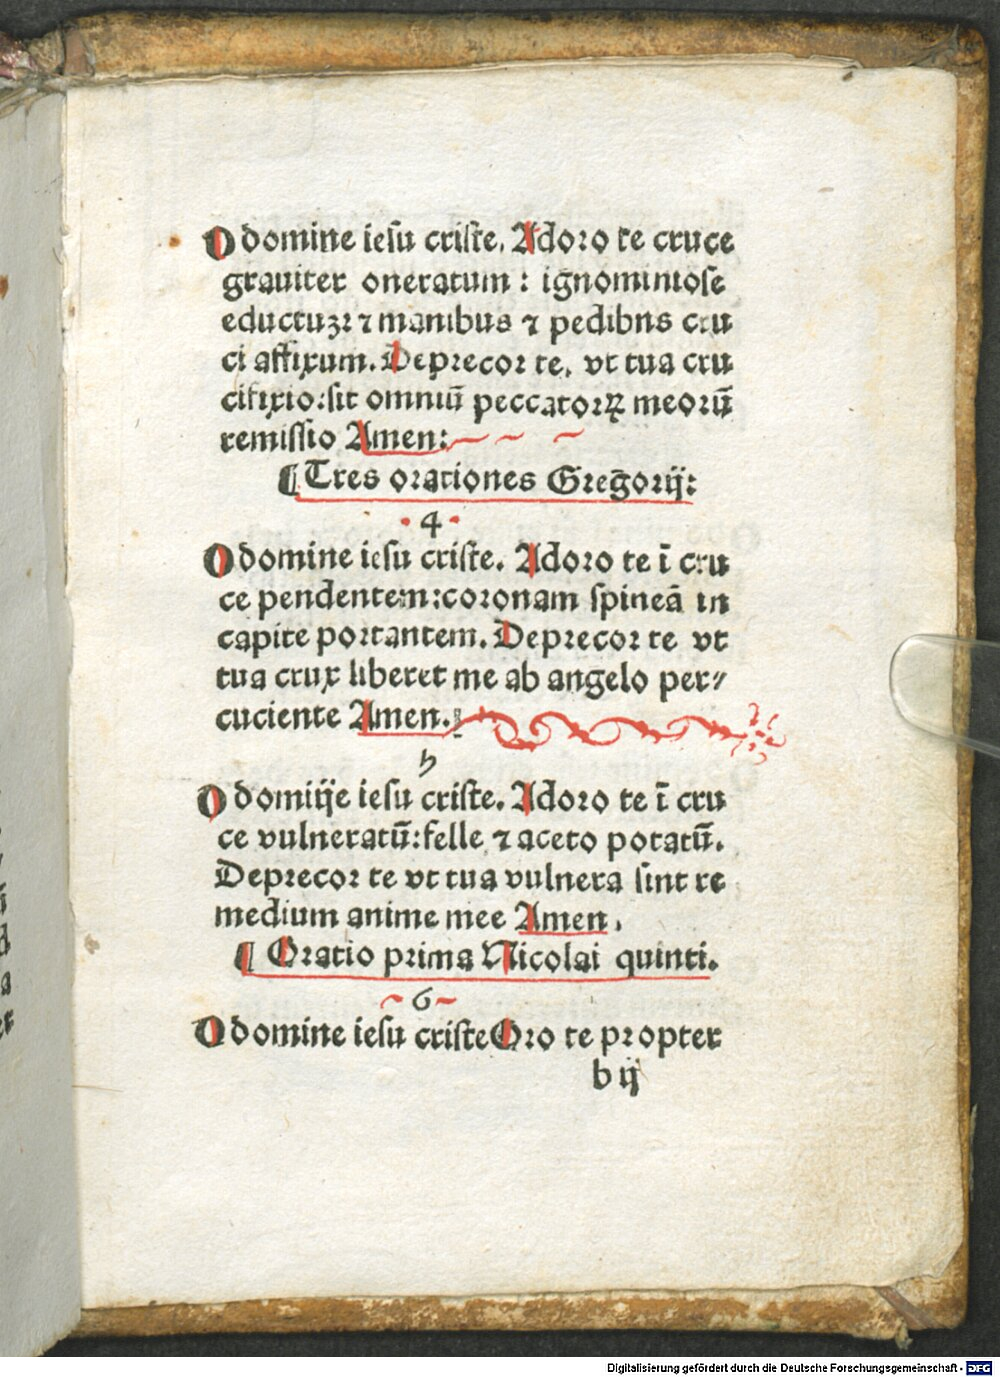 O domine iesu criste. Adoro te cruce
grauiter oneratum: ignominiose
eductuꝫ: ⁊ manibus ⁊ pedibus cru
ci affixum. Deprecor te, vt tua cru
cifixio: sit omniū peccatoꝝ meorū
remissio Amen:
¶ Tres orationes Gregorij:
·4·
O domine iesu criste. Adoro te ī cru
ce pendentem: coronam spineā in
capite portantem. Deprecor te vt
tua crux liberet me ab angelo per⸗
cuciente Amen.
5
O domiije iesu criste. Adoro te ī cru
ce vulneratū: felle ⁊ aceto potatū.
Deprecor te vt tua vulnera sint re
medium anime mee Amen.
¶ Oratio prima Nicolai quinti.
6
O domine iesu criste Oro te propter
b ij
Digitalisierung gefördert durch die Deutsche Forschungsgemeinschaft - DFG